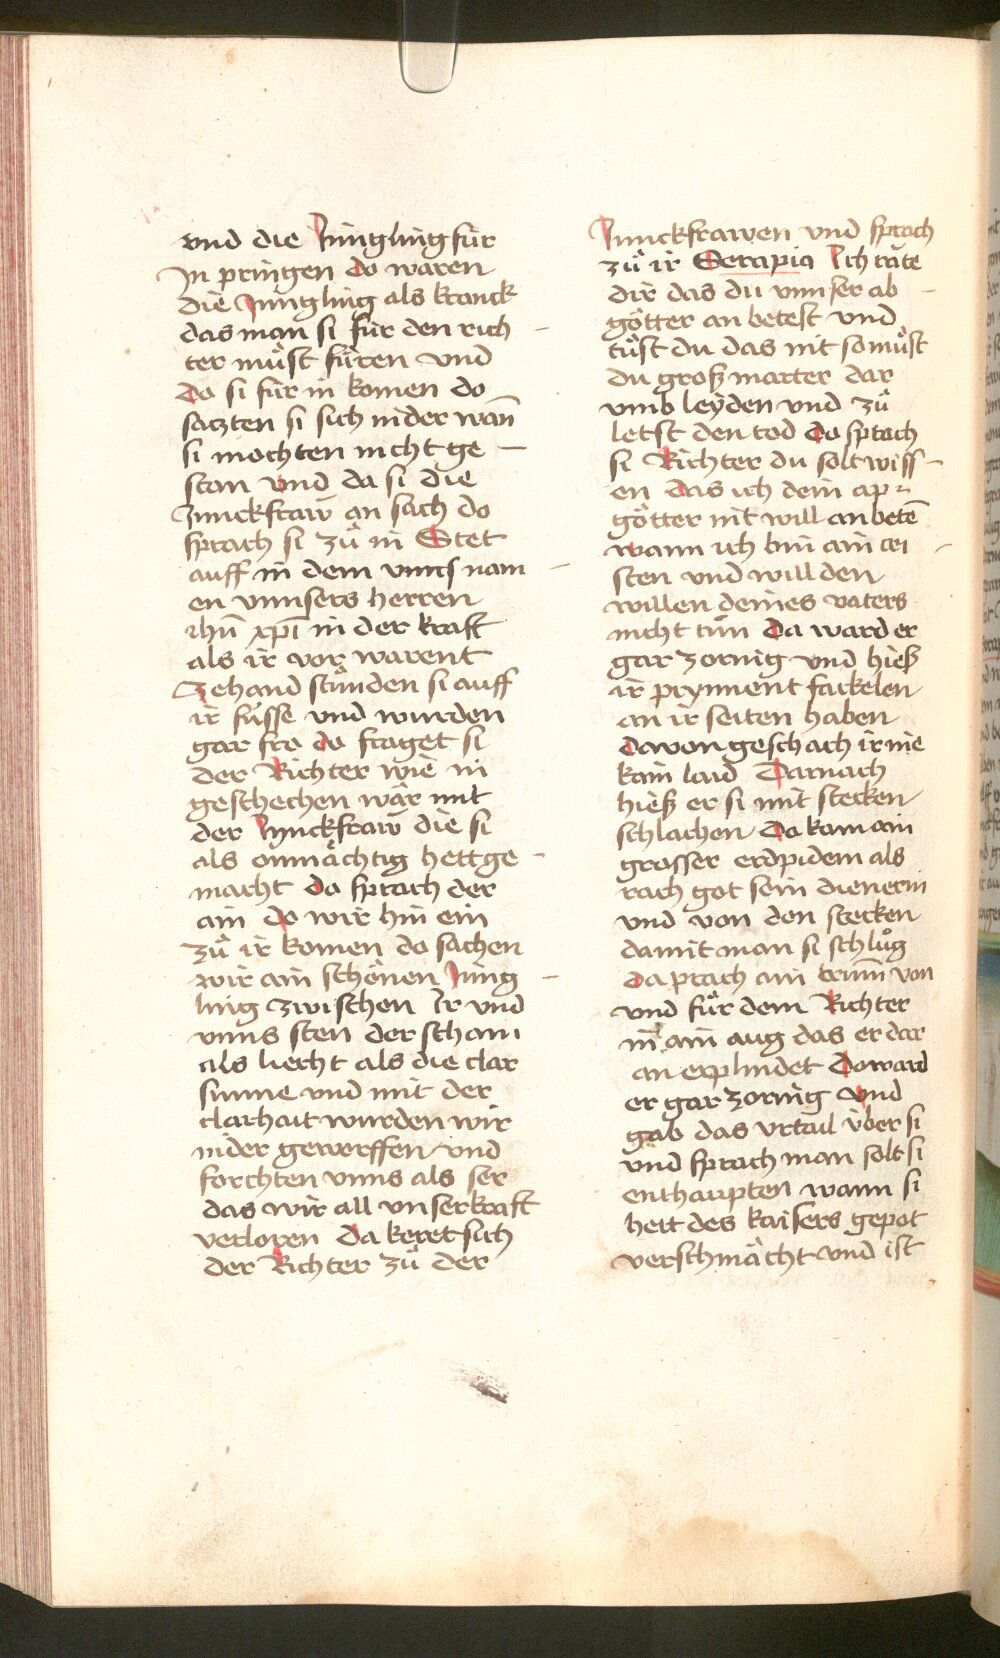 vnd die Jüngling für
In pringen do waren
die Jungling als kranck
das man si für den rich –
ter müst füren vnd
do si für in komen do
saczten si sich nider wan̄
si mochten nicht ge –
stan vnd da si die
Junckfraw̄ an sach do
sprach si zů in Stet
auff in dem vnns nam –
en vnnsers herren
ihū xp̄i in der kraft
als ir vor warent
Zehand stůnden si auff
ir füsse vnd wurden
gar fro do fraget si
der Richter wie in
geschechen wär mit
der Junckfraw̄ die si
als onmächtig hett ge –
macht do sprach der
ain do wir hin ein
zů ir komen do sachen
wir ain schönen Jüng –
ling zwischen Ir vnd
vnns sten der schain
als liecht als die clar
sunne vnd mit der
clarhait wurden wir
nider geworffen vnd
forchten vnns als ser
das wir all vnser kraft
verloren da keret sich
der Richter zů der
Junckfrawen vnd sprach
zů ir Serapia Ich rate
dir das du vnnser ab –
götter an betest vnd
tůst du das nit so můst
du groß marter dar
vmb leyden vnd zů
letst den tod do sprach
si Richter du solt wiss –
en das ich dein ap –
götter nit will anbetē
wann ich bin ain cri –
sten vnd will den
willen deines vaters
nicht tůn da ward er
gar zornig vnd hieß
ir prynnent fackelen
an ir seiten haben
davon geschach ir nie
kain laid Darnach
hieß er si mit stecken
schlachen Da kam ain
grosser erdpidem als
rach got sein dienerin
vnd von den stecken
damit man si schlůg
da prach ain trum̄ von
vnd für dem Richter
in ain aug das er dar
an erplindet Do ward
er gar zornig vnd
gab das vrtail über si
vnd sprach man solt si
enthaupten wann si
hett des kaisers gepot
verschmächt vnd ist